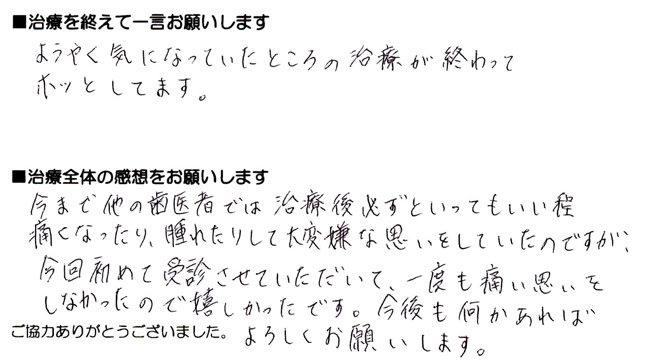 ■治療を終えて一言お願いします
ようやく気になっていたところの治療が終わって
ホッとしてます。
■治療全体の感想をお願いします
今まで他の歯医者では治療後必ずといってもいい程
痛くなったり、腫れたりして大変嫌な思いをしていたのですが、
今回初めて受診させていただいて、一度も痛い思いを
しなかったので嬉しかったです。今後も何かあれば
よろしくお願いします。
ご協力ありがとうございました。